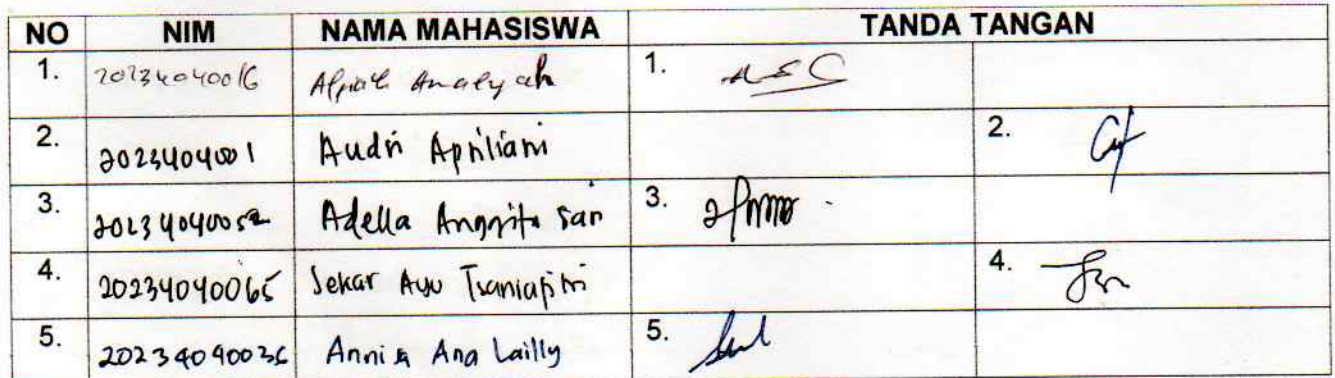 NO NIM NAMA MAHASISWA TANDA TANGAN
1. 20234040016 Amalyah 1.
2. 2023404001 Audri Apriliani 2.
3. 20234040052 Adella Anggita Sari 3.
4. 20234040065 Sekar Ayu Tsaniaputri 4.
5. 20234040036 Annisa Ana Lailly 5.